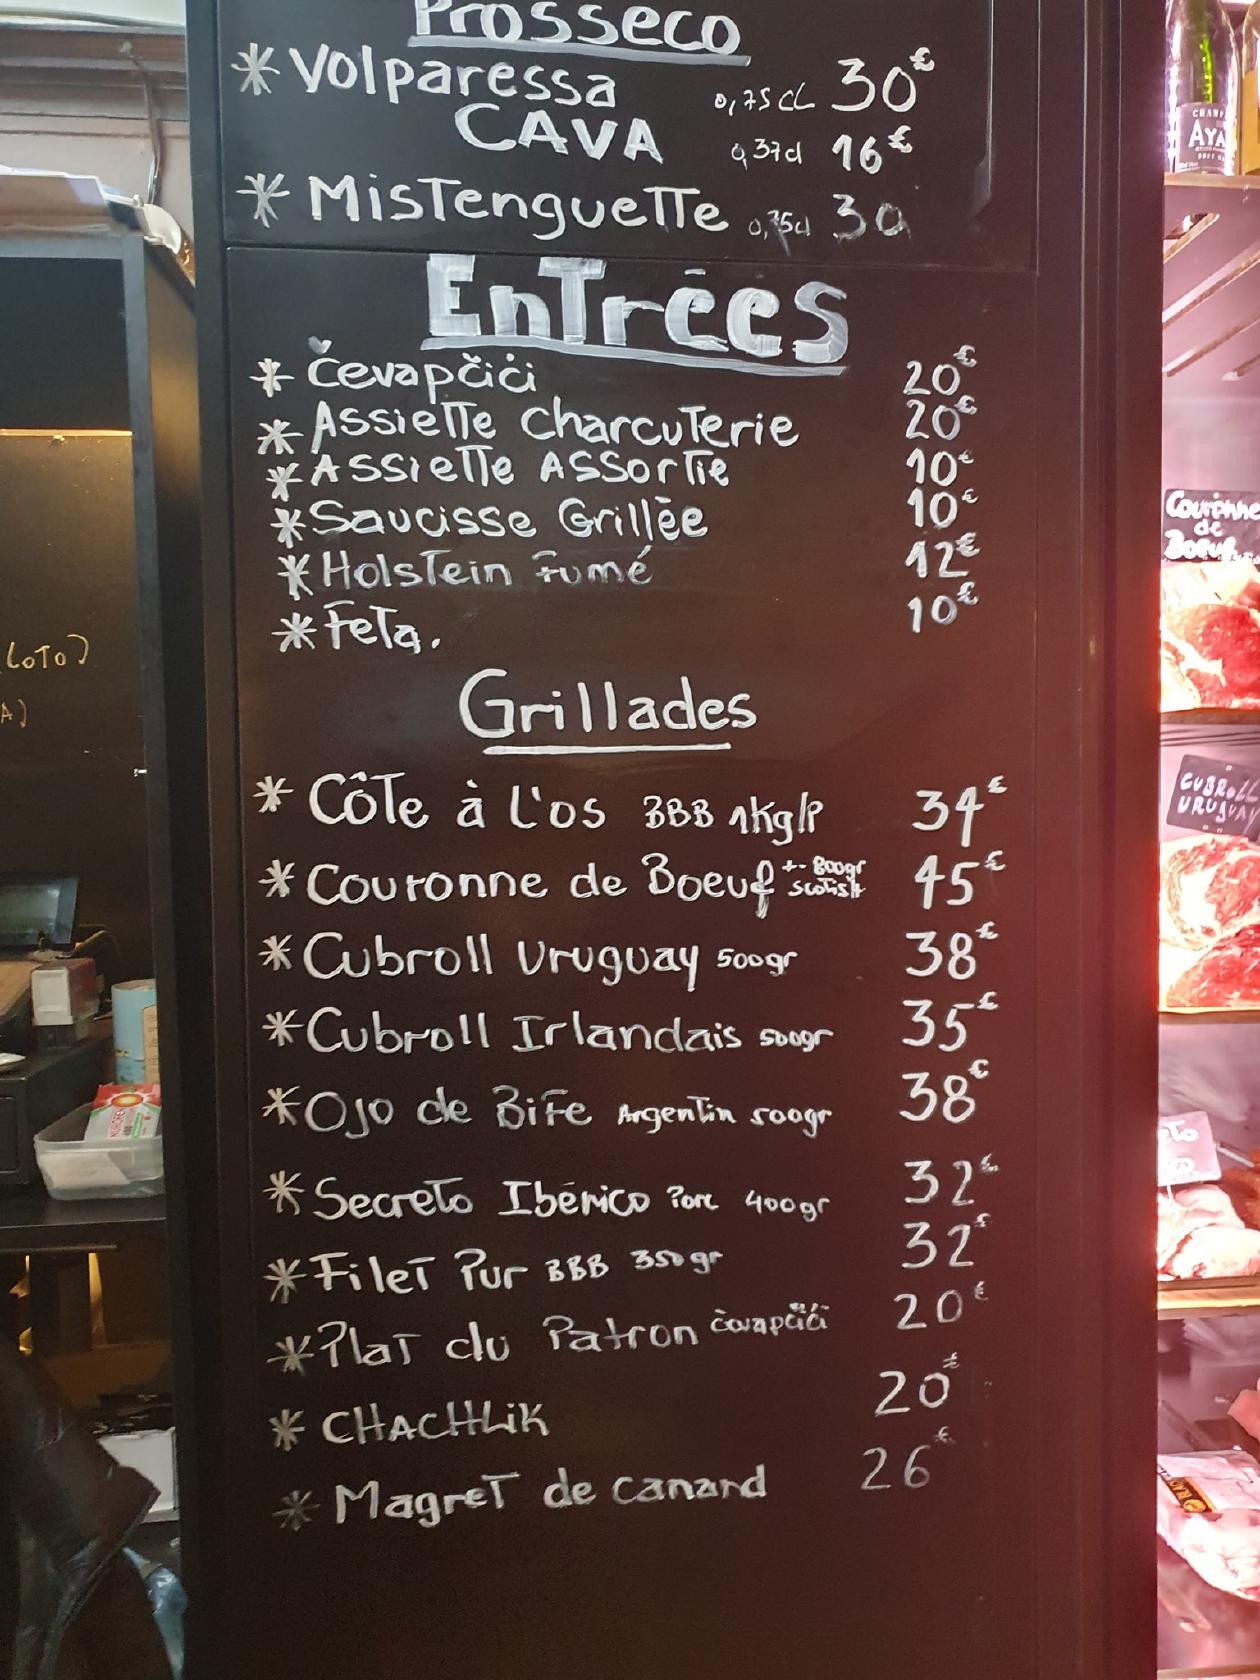 Prosseco
* Volparessa 0,75cl 30€
CAVA 0,37cl 16€
* Mistenguette 0,75cl 30
Entrées
* Čevapčići 20€
* Assiette Charcuterie 20€
* Assiette Assortie 10€
* Saucisse Grillée 10€
* Holstein Fumé 12€
* Feta. 10€
Grillades
* Côte à l'os BBB 1kg/P 34€
* Couronne de Boeuf +- 800gr scotish 45€
* Cubroll Uruguay 500gr 38€
* Cubroll Irlandais 500gr 35€
* Ojo de Bife Argentin 500gr 38€
* Secreto Ibérico Porc 400gr 32€
* Filet Pur BBB 350gr 32€
* Plat du Patron čevapčići 20€
* CHACHLiK 20€
* Magret de canard 26€
(LOTO)
A)
AYA
Couronne
de
Boeuf
CUBROLL
URUGUAY